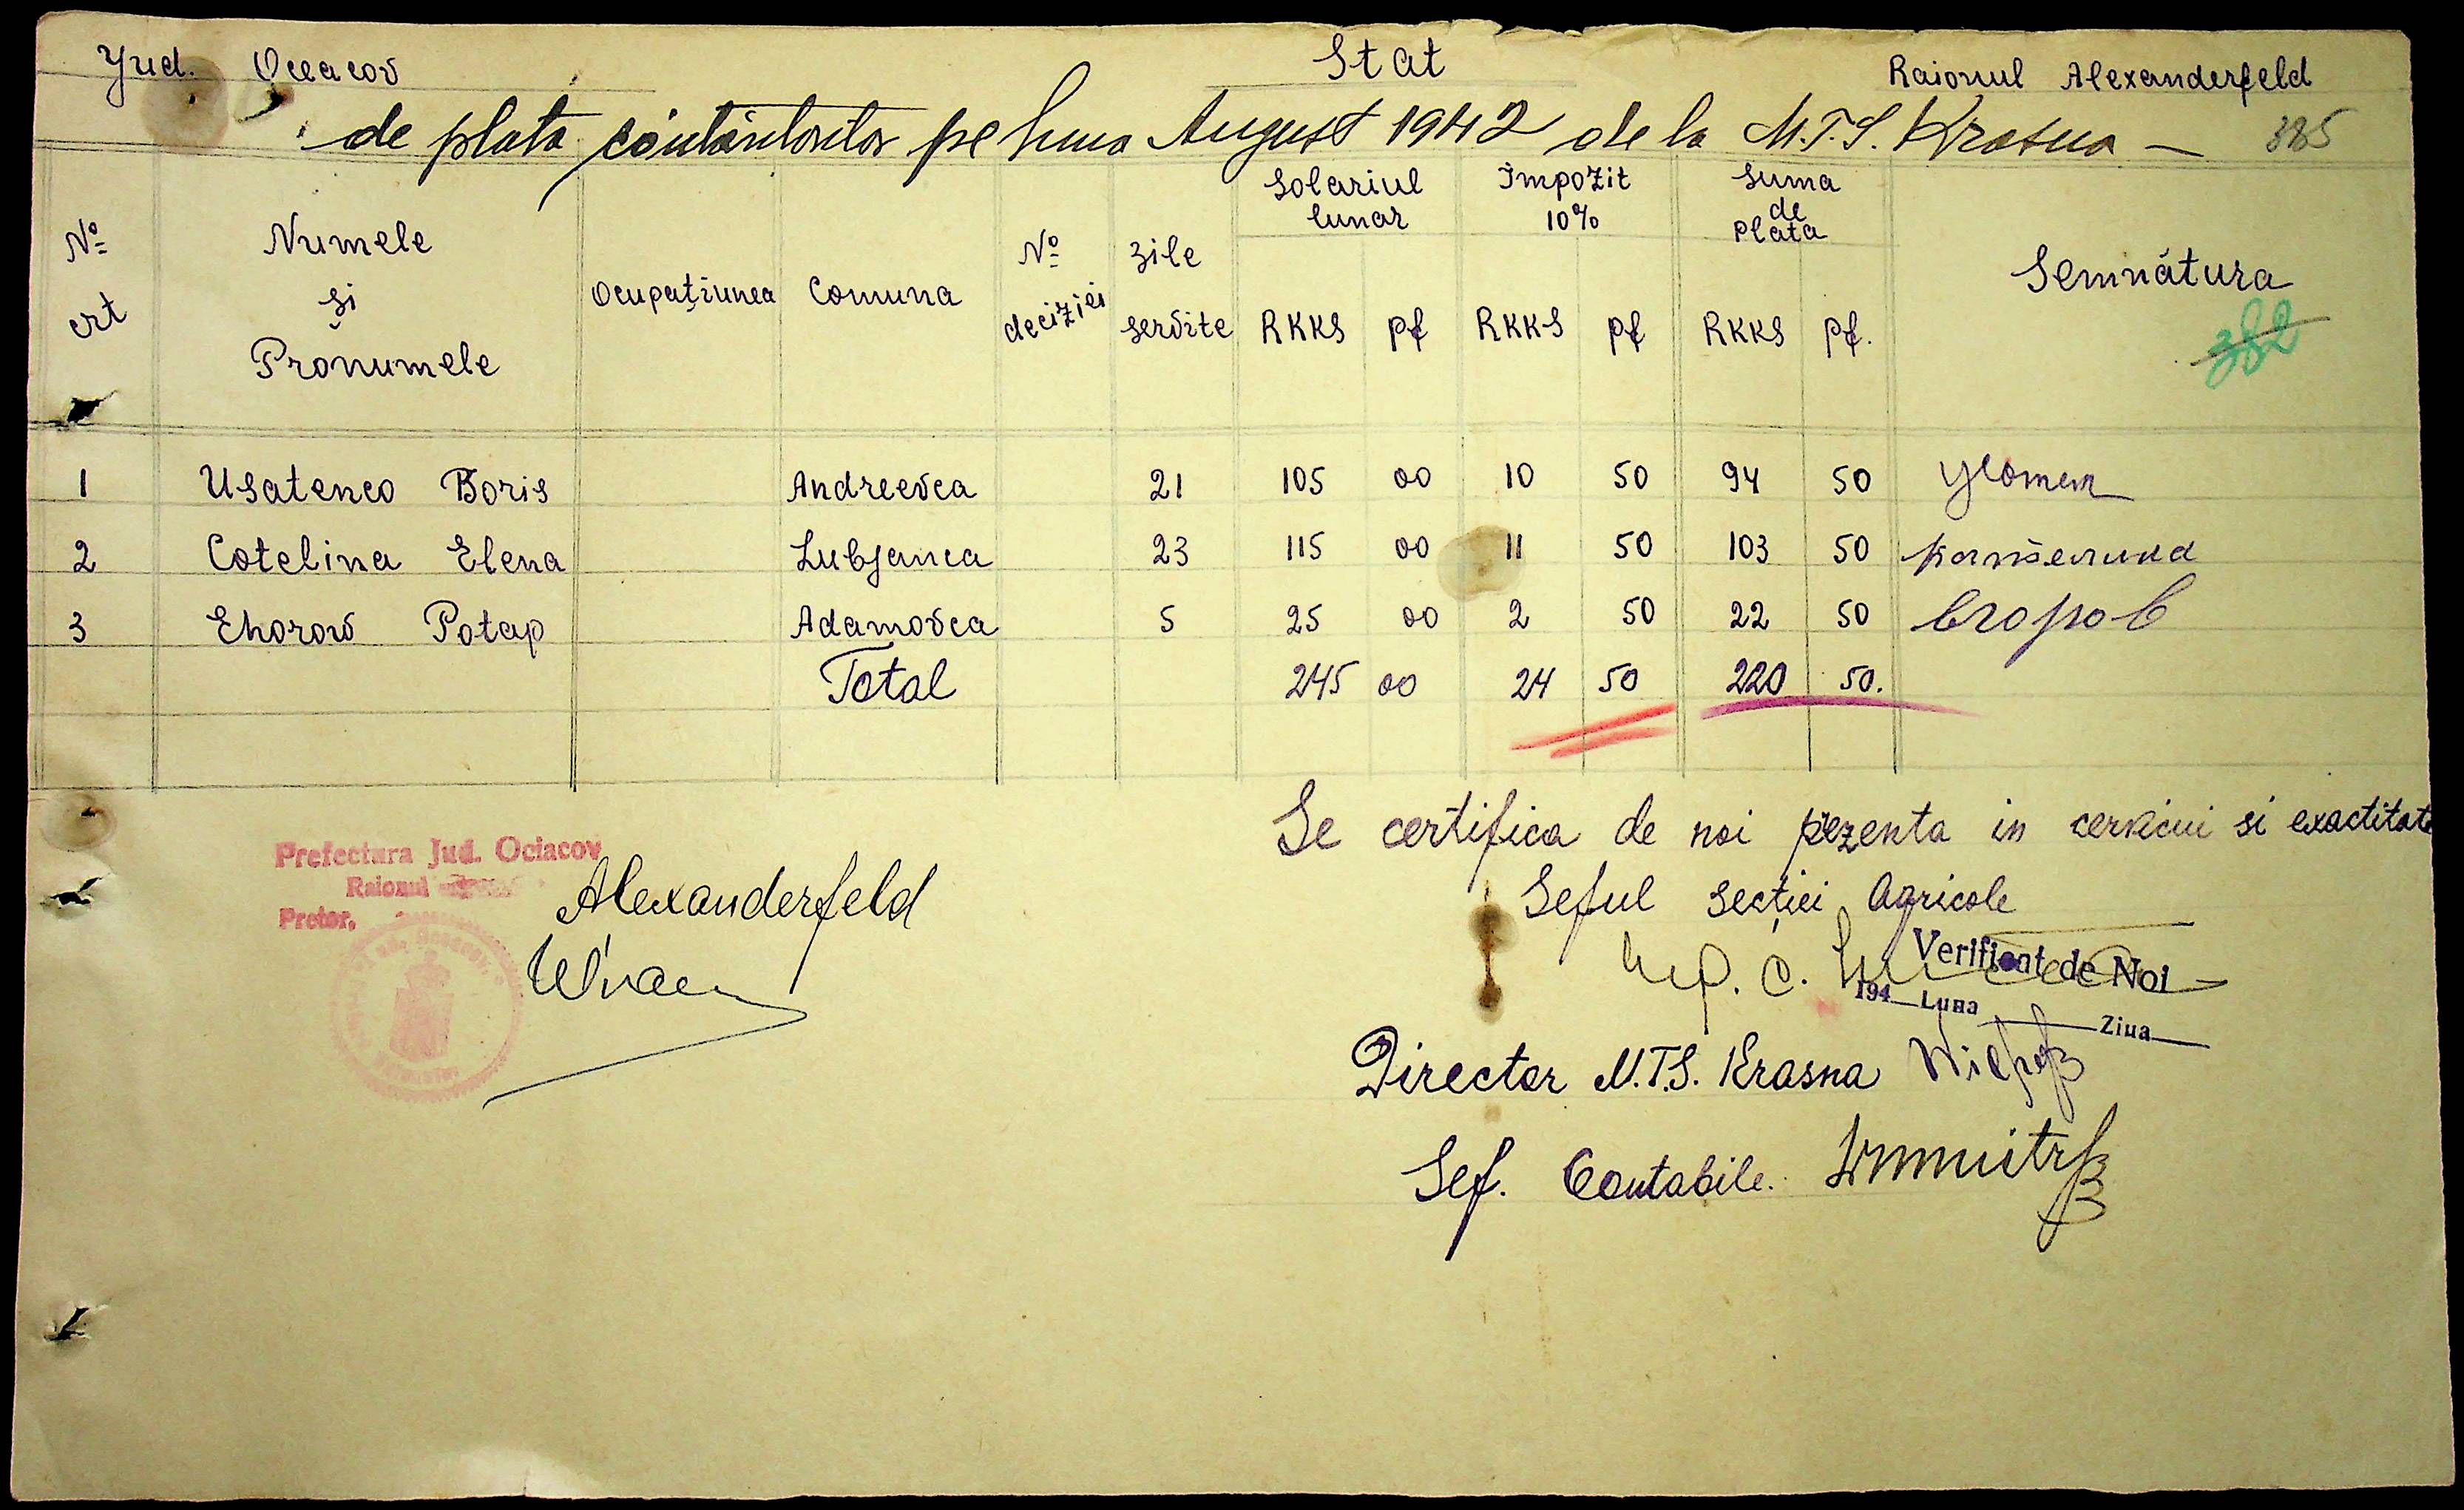 Jud. Oceacov Stat Raionul Alexanderfeld
de plata cântăritorilor pe luna August 1942 de la M.T.S. Krasna — 385
№ crt Numele și Pronumele Ocupațiunea Comuna № deciziei zile servite Solariul lunar Impozit 10% Suma de plata Semnătura
RKKS pf RKKS pf RKKS pf.
382
1 Usatenco Boris Andreevca 21 105 00 10 50 94 50
2 Cotelina Elena Lubjanca 23 115 00 11 50 103 50
3 Ehorow Potap Adamovca 5 25 00 2 50 22 50 Егоров
Total 245 00 24 50 220 50.
Se certifica de noi pezenta in si exactitate
Seful secției Agricole
Prefectura Jud. Ociacov
Raionul Alexanderfeld
Pretor,
Verificat de Noi
194 Luna Ziua
Director M.T.S. Krasna
Sef. Contabile.